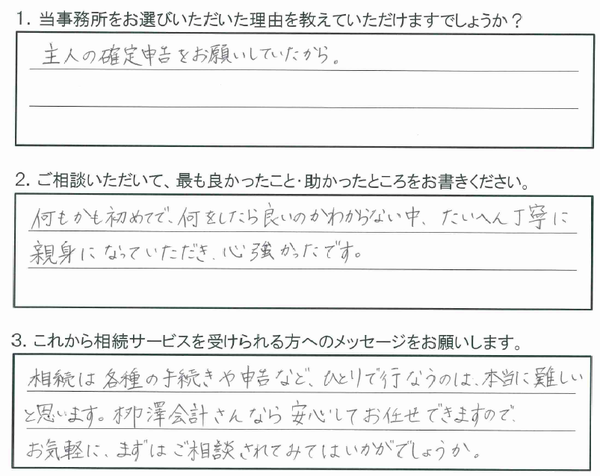 1. 当事務所をお選びいただいた理由を教えていただけますでしょうか？
主人の確定申告をお願いしていたから。
2. ご相談いただいて、最も良かったこと・助かったところをお書きください。
何もかも初めてで、何をしたら良いのかわからない中、たいへん丁寧に
親身になっていただき、心強かったです。
3. これから相続サービスを受けられる方へのメッセージをお願いします。
相続は各種の手続きや申告など、ひとりで行なうのは、本当に難しい
と思います。栁澤会計さんなら安心してお任せできますので、
お気軽に、まずはご相談されてみてはいかがでしょうか。